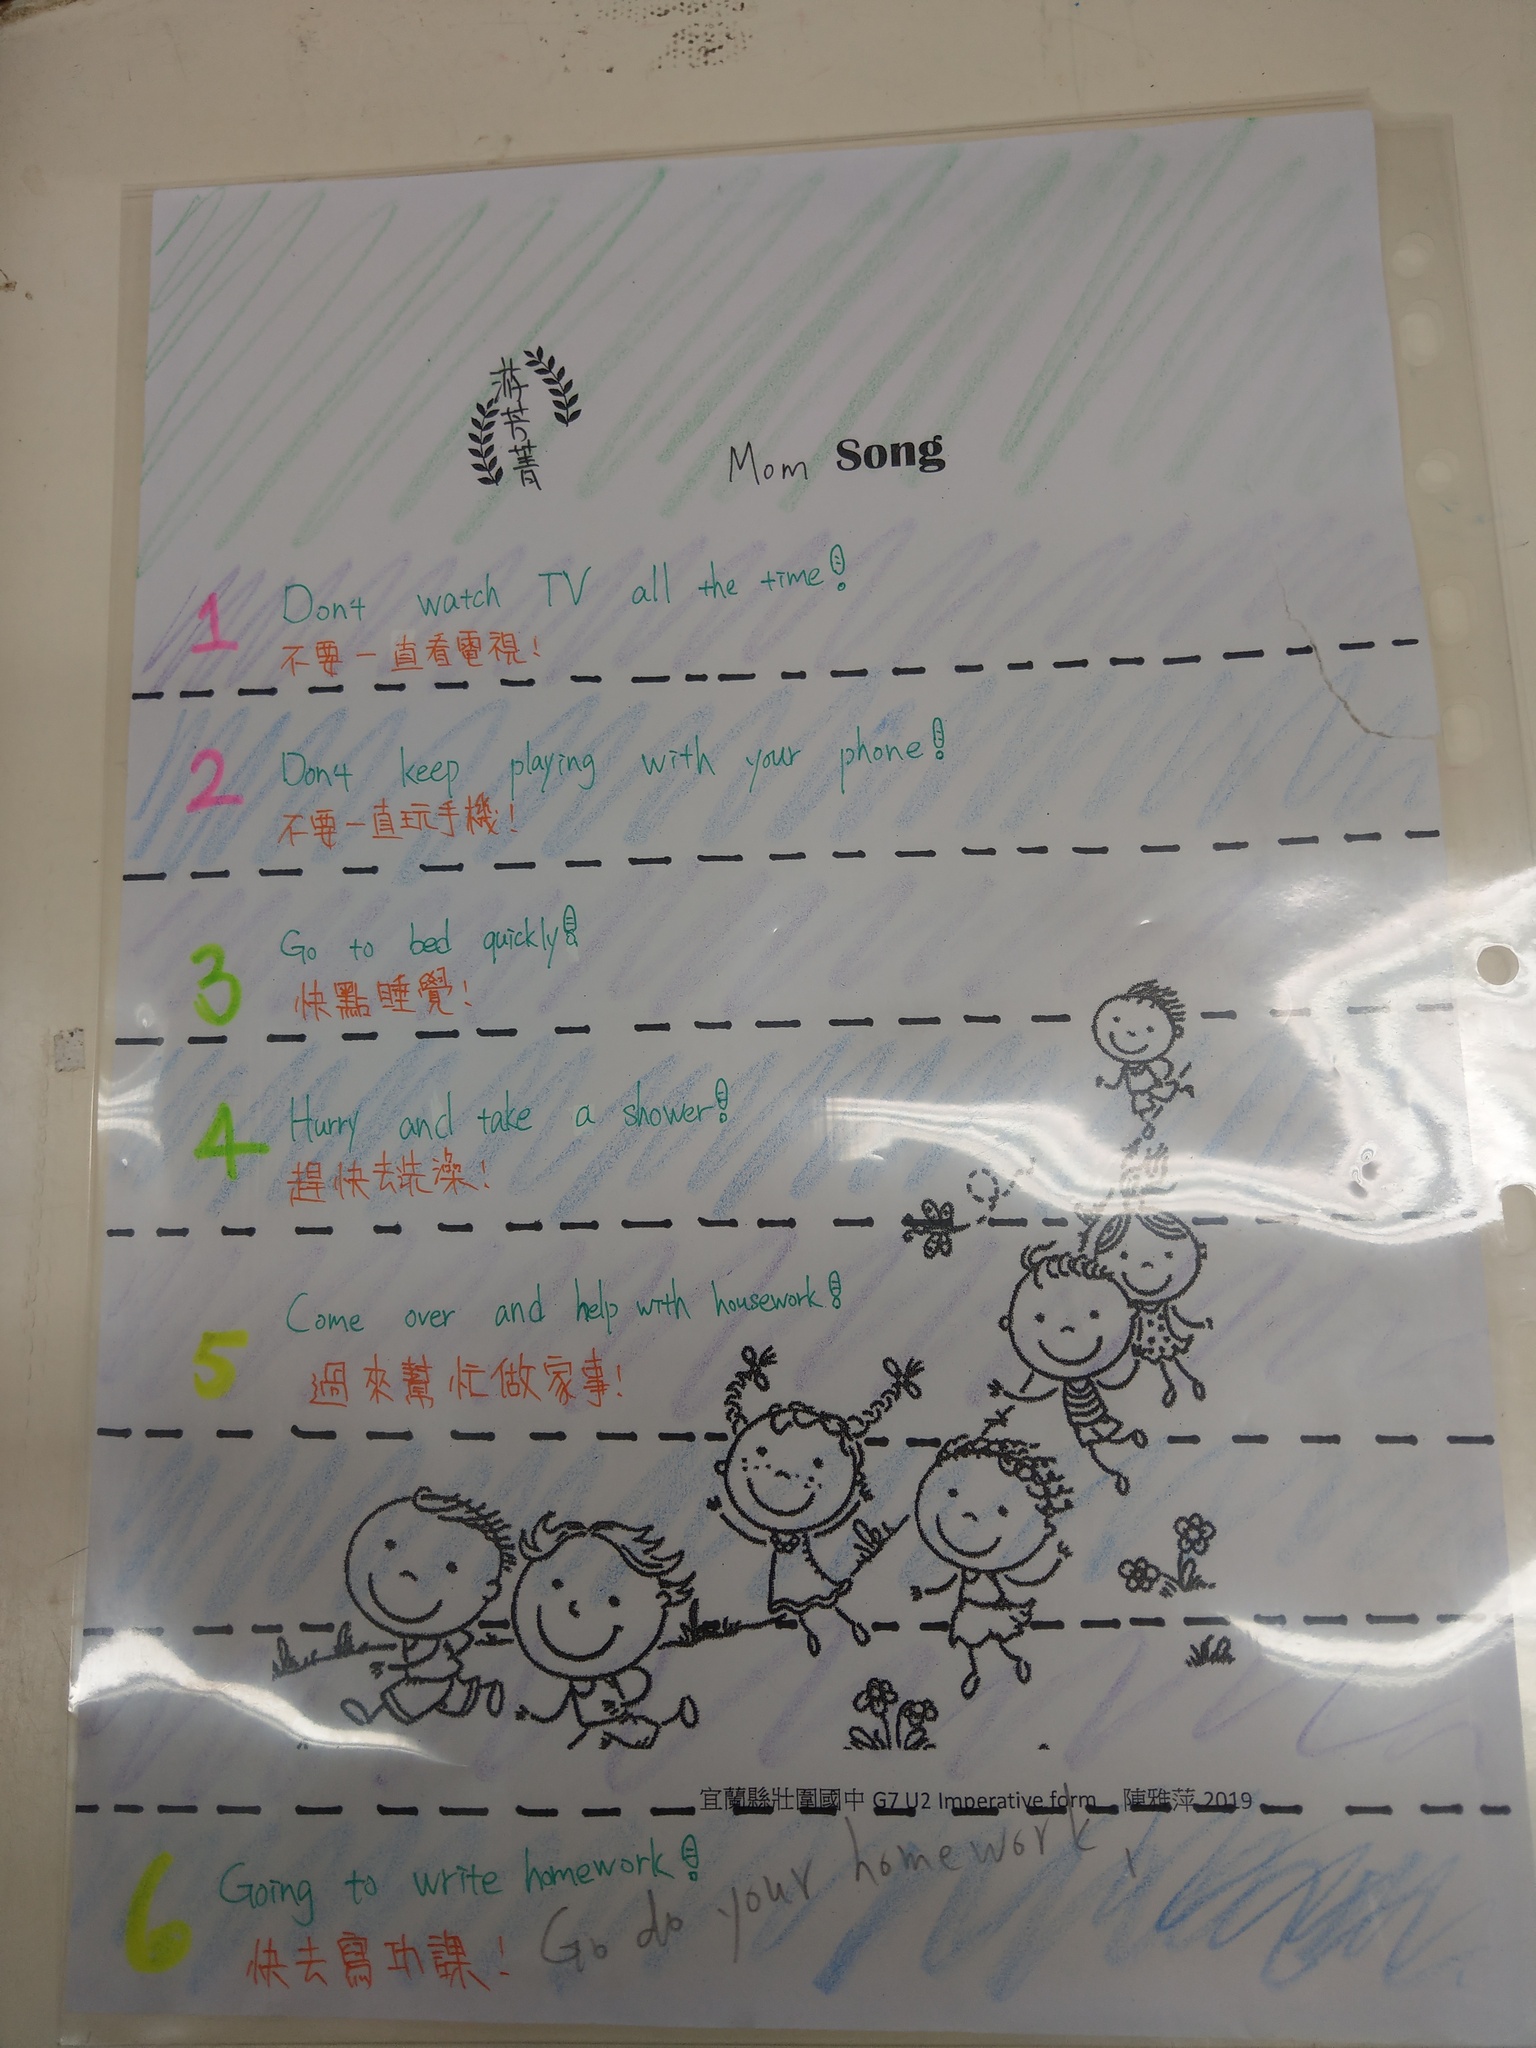 游芳菁
Mom Song
1 Don't watch TV all the time!
不要一直看電視!
2 Don't keep playing with your phone!
不要一直玩手機!
3 Go to bed quickly!
快點睡覺!
4 Hurry and take a shower!
趕快去洗澡!
5 Come over and help with housework!
過來幫忙做家事!
宜蘭縣壯圍國中 G7 U2 Imperative form 陳雅萍 2019
6 Going to write homework!
Go do your homework!
快去寫功課!